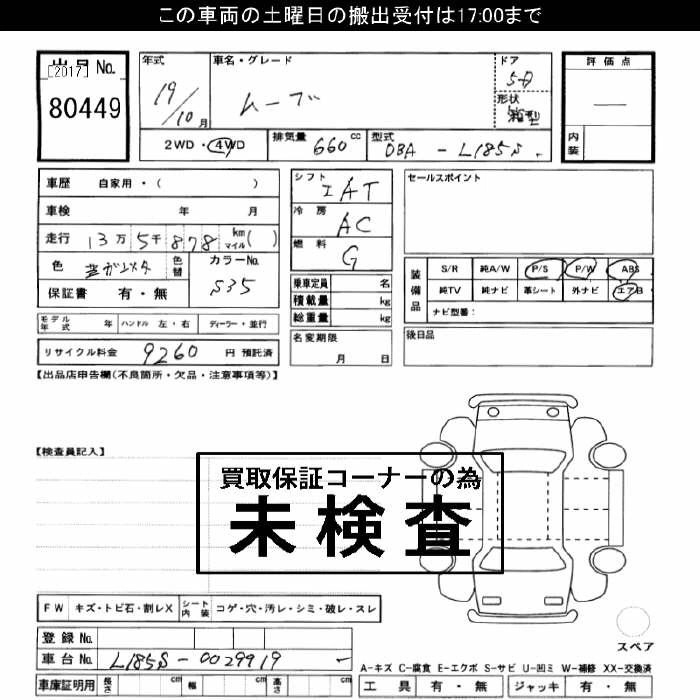 この車両の土曜日の搬出受付は17:00まで
出品 No.
[2017]
80449
年式
19/10月
車名・グレード
ムーブ
ドア
5D
形状
箱型
評価点
—
内装
2WD・4WD
排気量 660 cc
型式 DBA - L185S
車歴 自家用・( )
車検 年 月
走行 13万5千878 km マイル( )
色
色替
カラーNo.
S35
保証書 有・無
シフト
IAT
冷房
AC
燃料
G
乗車定員 名
積載量 kg
総重量 kg
セールスポイント
装備品
S/R 純A/W P/S P/W ABS
純TV 純ナビ 革シート 外ナビ エアB
ナビ型番:
モデル年式 年 ハンドル 左・右 ディーラー・並行
リサイクル料金 9260 円 預託済
名変期限
月 日
後日品
【出品店申告欄(不良箇所・欠品・注意事項等)】
【検査員記入】
買取保証コーナーの為
未検査
FW キズ・トビ石・割レX
シート内装 コゲ・穴・汚レ・シミ・破レ・スレ
登録 No.
車台 No. L185S-0029919
スペア
A-キズ C-腐食 E-エクボ S-サビ U-凹ミ W-補修 XX-交換済
車庫証明用 長さ cm 幅 cm 高さ cm
工具 有・無 ジャッキ 有・無